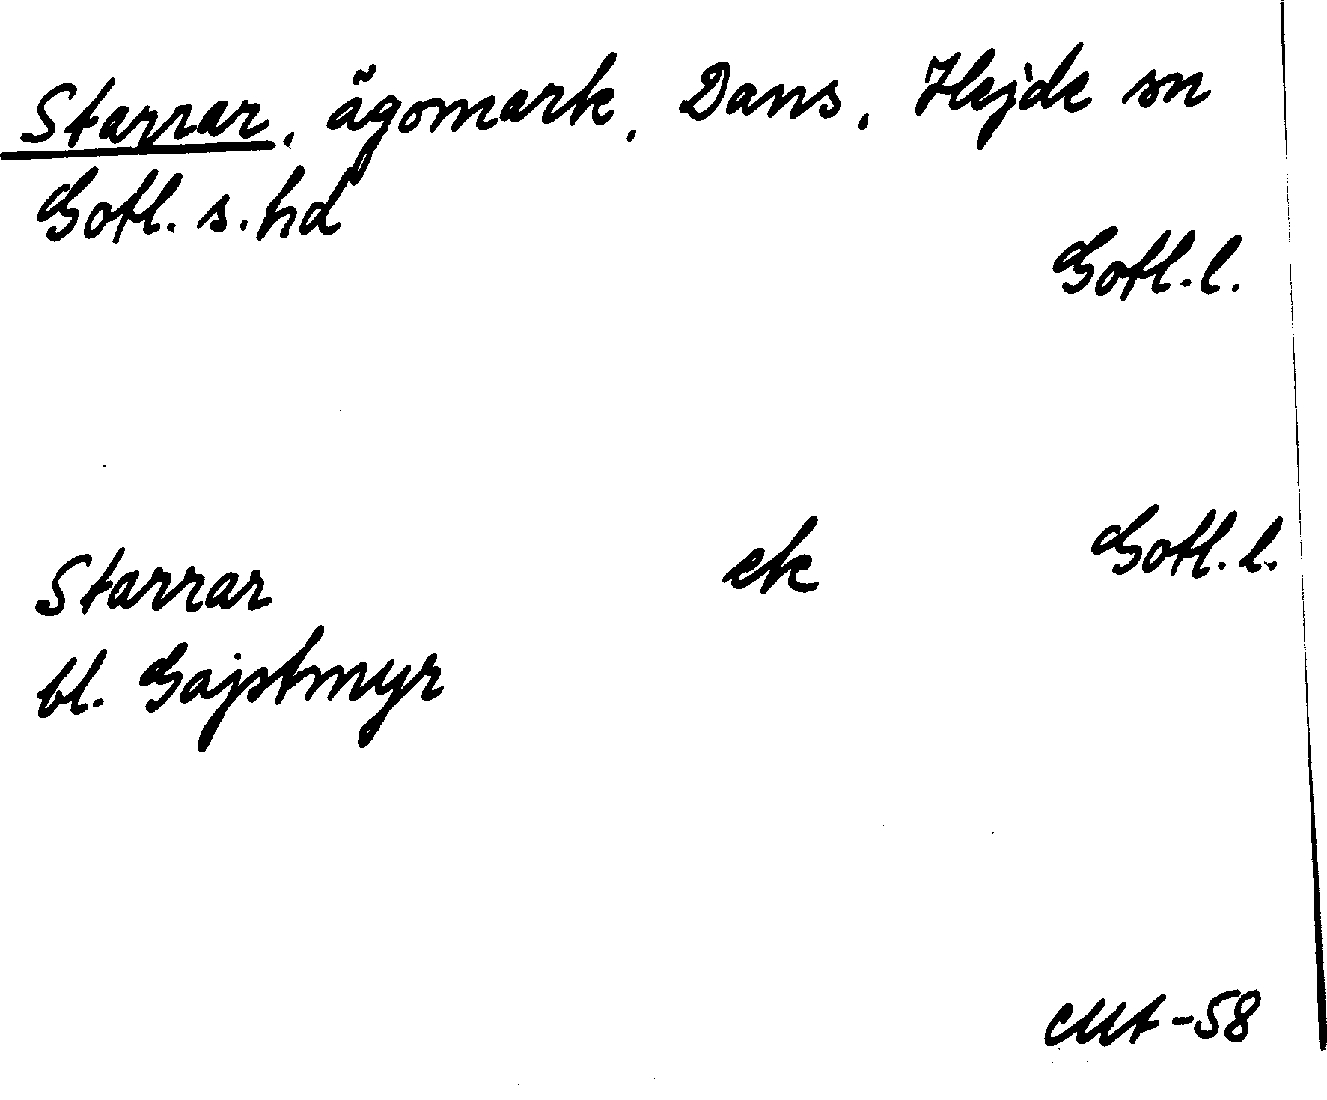 Starrar, ägomark, Dans, Hejde sn
Gotl. s. hd
Gotl. l.
Starrar ek Gotl. l.
bl. Gajstmyr
MA-58